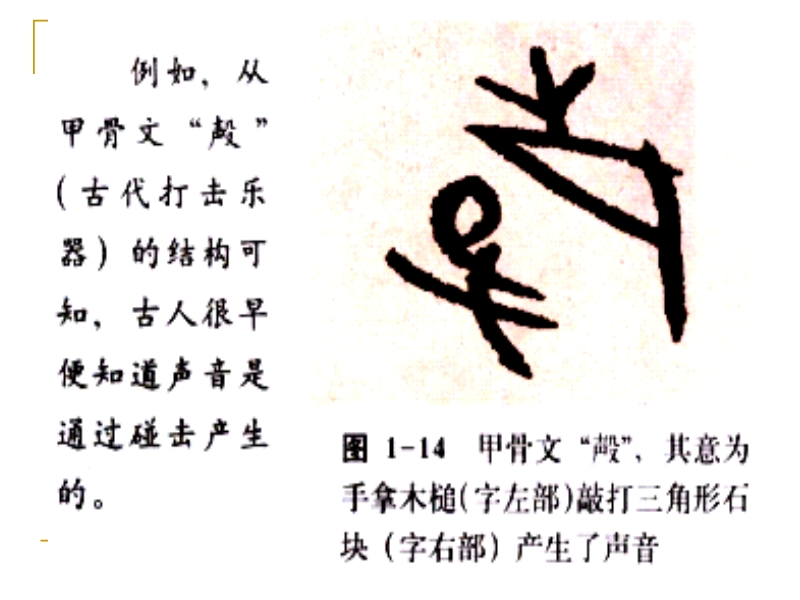 例如，从
甲骨文“殸”
（古代打击乐
器）的结构可
知，古人很早
便知道声音是
通过碰击产生
的。
图 1-14 甲骨文“殸”，其意为
手拿木槌(字左部)敲打三角形石
块（字右部）产生了声音